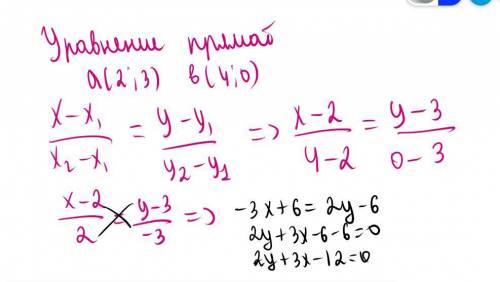 Уравнение прямой
a(2;3) в(4;0)
x-x₁/x₂-x₁ = y-y₁/y₂-y₁ => x-2/4-2 = y-3/0-3
x-2/2 = y-3/-3 => -3x+6=2y-6
2y+3x-6-6=0
2y+3x-12=0